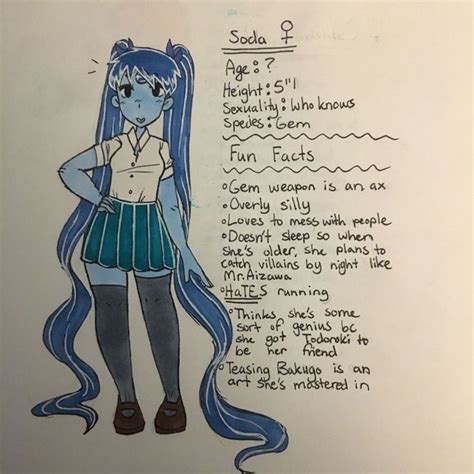 Soda ♀
Age: ?
Height: 5"1
Sexuality: Who knows
Species: Gem
Fun Facts
○Gem weapon is an ax
○Overly silly
○Loves to mess with people
○Doesn't sleep so when
she's older, she plans to
catch villains by night like
Mr.Aizawa
○HaTES running
○Thinks she's some
sort of genius bc
she got Todoroki to
be her friend
○Teasing Bakugo is an
art she's mastered in